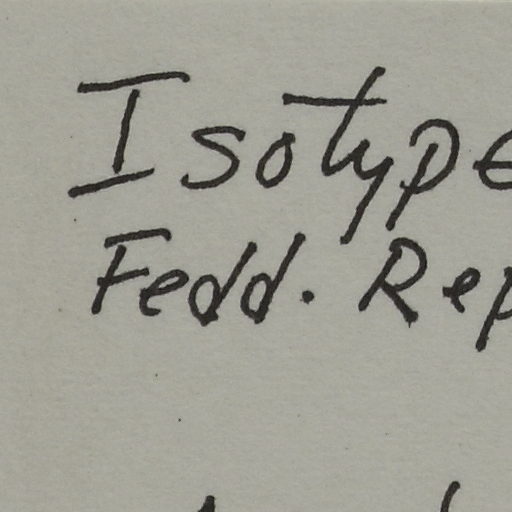 Isotype
Fedd. Rep